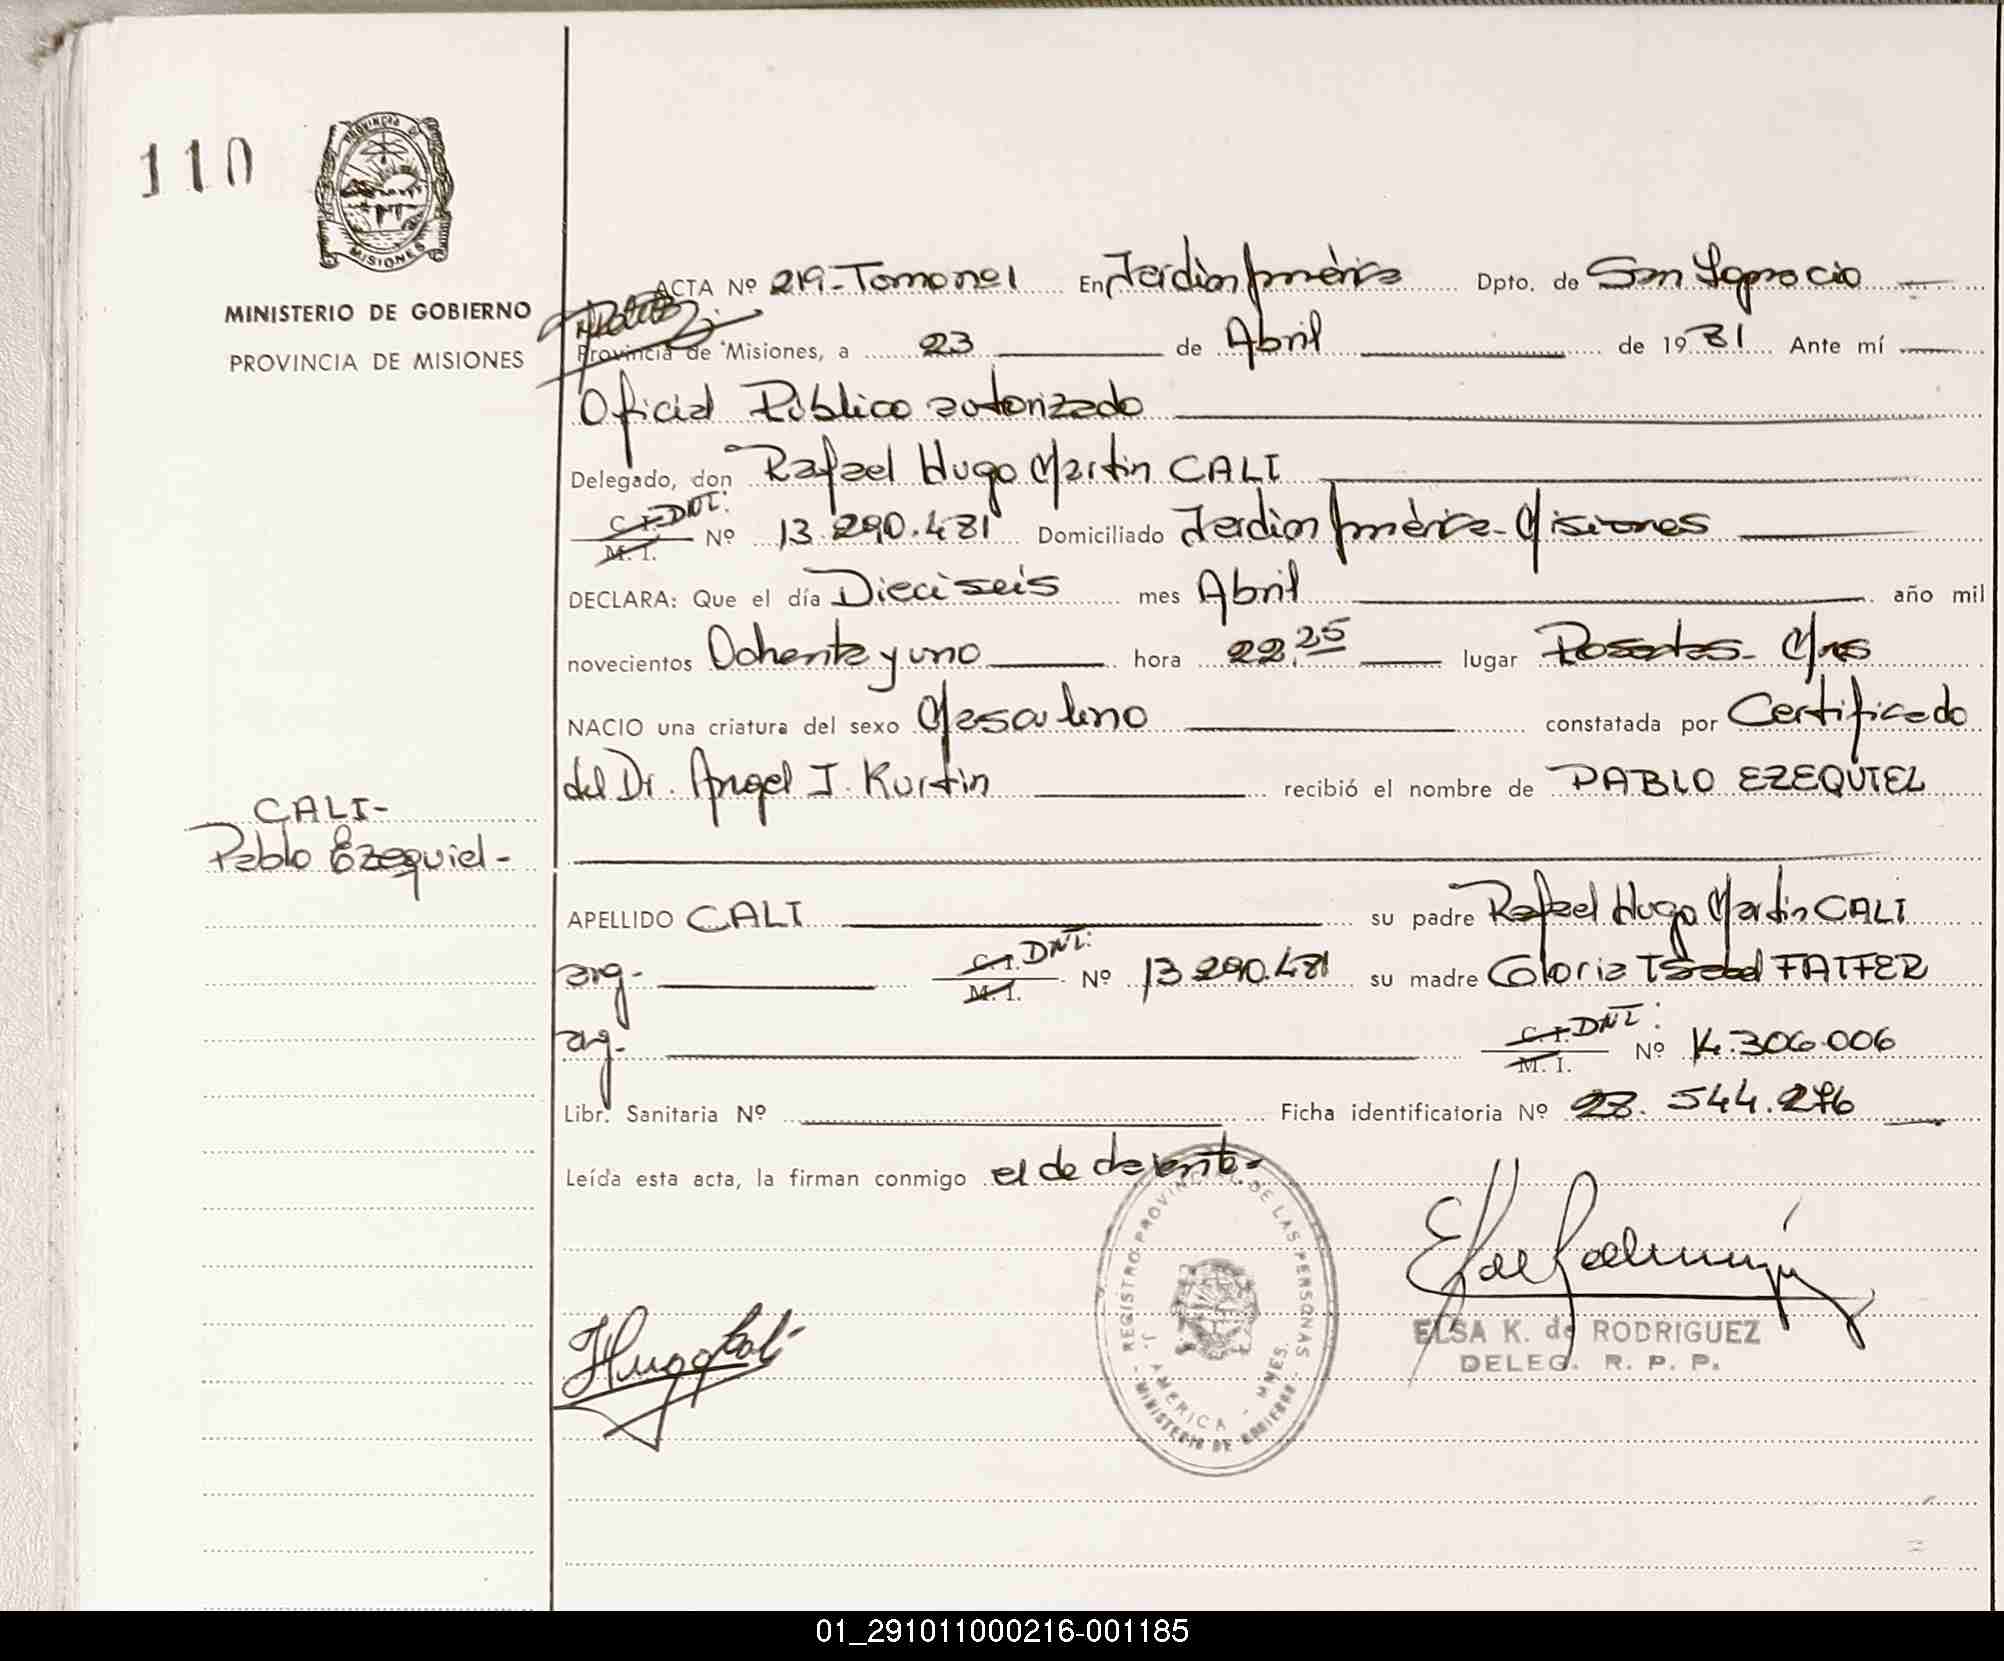 110
PROVINCIA DE
MISIONES
MINISTERIO DE GOBIERNO
PROVINCIA DE MISIONES
ACTA Nº 219-Tomo nº1 En Jardin América Dpto. de San Ignacio
Provincia de Misiones, a 23 de Abril de 1981 Ante mí
Oficial Público autorizado
Delegado, don Rafael Hugo Martin CALI
C.I. DNI: M. I. Nº 13.290.481 Domiciliado Jardin América-Misiones
DECLARA: Que el día Dieciseis mes Abril año mil
novecientos Ochenta y uno hora 22,25 lugar Posadas- Mnes
NACIO una criatura del sexo Masculino constatada por Certificado
del Dr. Angel J. Kurtin recibió el nombre de PABLO EZEQUIEL
CALI-
Pablo Ezequiel-
APELLIDO CALI su padre Rafael Hugo Martin CALI
arg- C.I. DNI: M. I. Nº 13.290.481 su madre Gloria Isabel FAIFER
arg- C.I. DNI: M. I. Nº 14.306.006
Libr. Sanitaria Nº Ficha identificatoria Nº 28.544.276
Leída esta acta, la firman conmigo el declarante-
REGISTRO PROVINCIAL DE LAS PERSONAS
J. AMERICA - MNES.
MINISTERIO DE GOBIERNO
Hugo Cali
ELSA K. de RODRIGUEZ
DELEG. R. P. P.
01_291011000216-001185